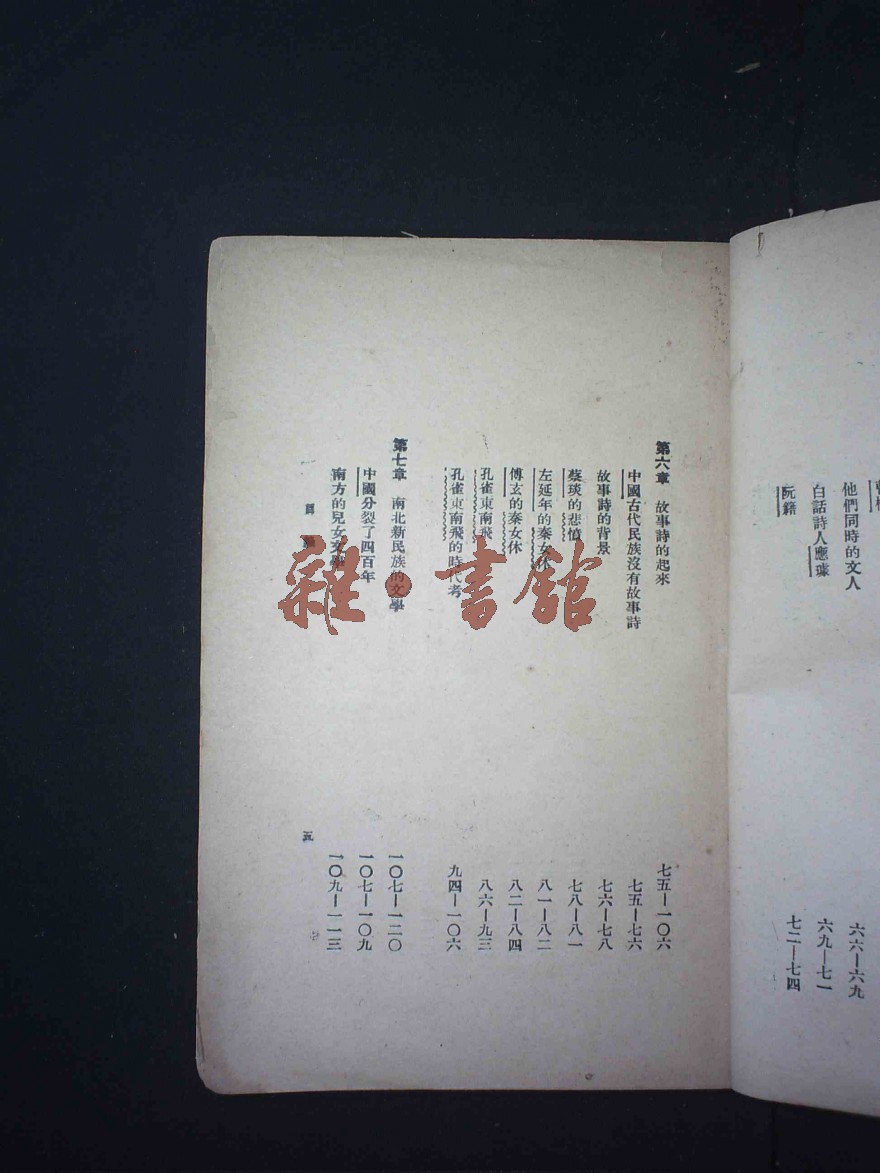 他們同時的文人 六六—六九
白話詩人應璩 六九—七一
阮籍 七二—七四
第六章 故事詩的起來 七五—一〇六
中國古代民族沒有故事詩 七五—七六
故事詩的背景 七六—七八
蔡琰的悲憤 七八—八一
左延年的秦女休 八一—八二
傅玄的秦女休 八二—八四
孔雀東南飛 八六—九三
孔雀東南飛的時代考 九四—一〇六
第七章 南北新民族的文學 一〇七—一二〇
中國分裂了四百年 一〇七—一〇九
南方的兒女文學 一〇九—一一三
目
五
雜·書館